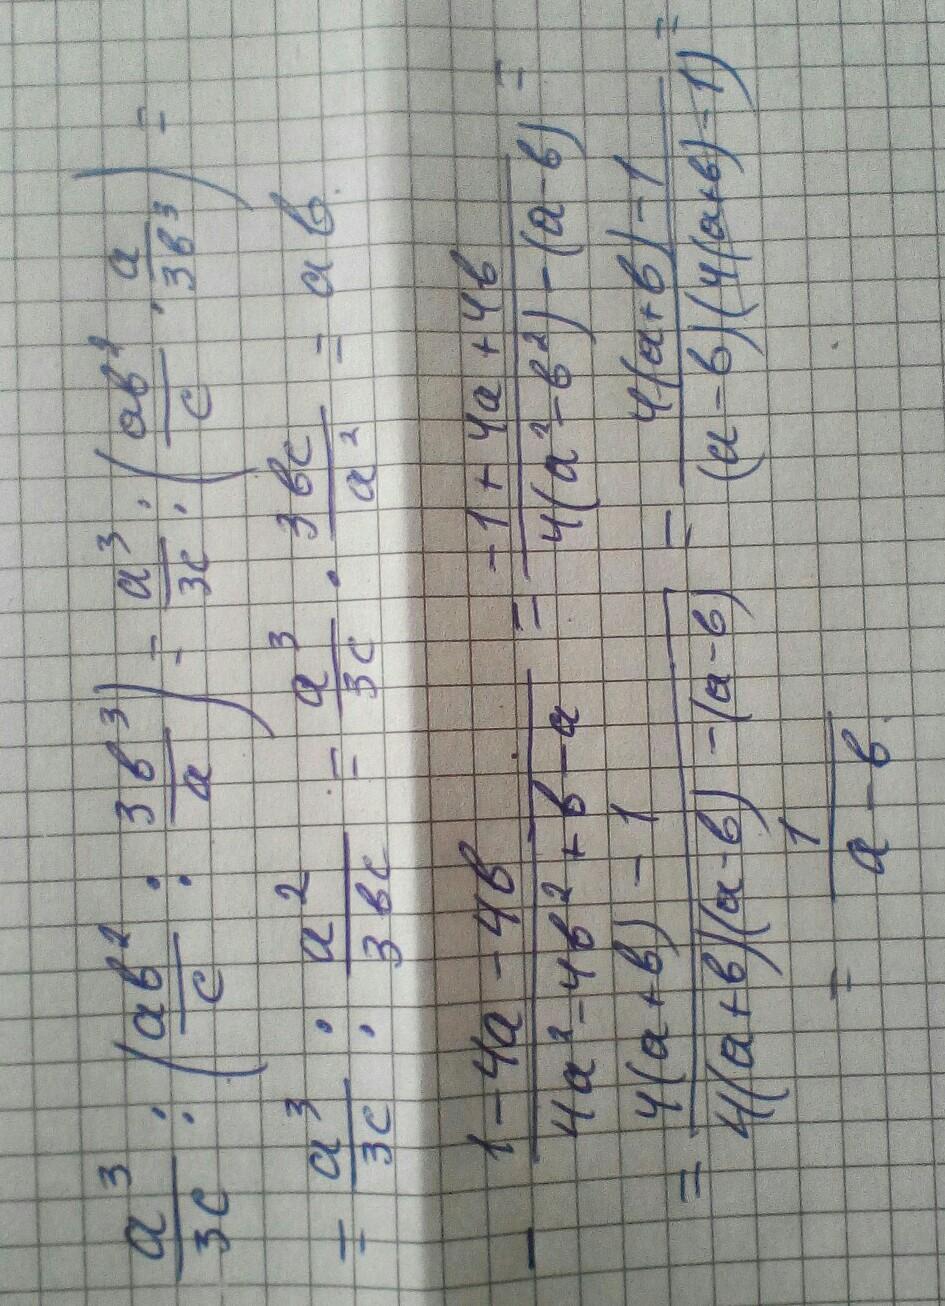 a³/3c : (ab²/c : 3b³/a) = a³/3c : (ab²/c · a/3b³) =
= a³/3c : a²/3bc = a³/3c · 3bc/a² = ab.
- (1-4a-4b)/(4a²-4b²+b-a) = (-1+4a+4b)/(4(a²-b²)-(a-b)) =
= (4(a+b)-1)/(4(a+b)(a-b)-(a-b)) = (4(a+b)-1)/((a-b)(4(a+b)-1)) =
= 1/(a-b).